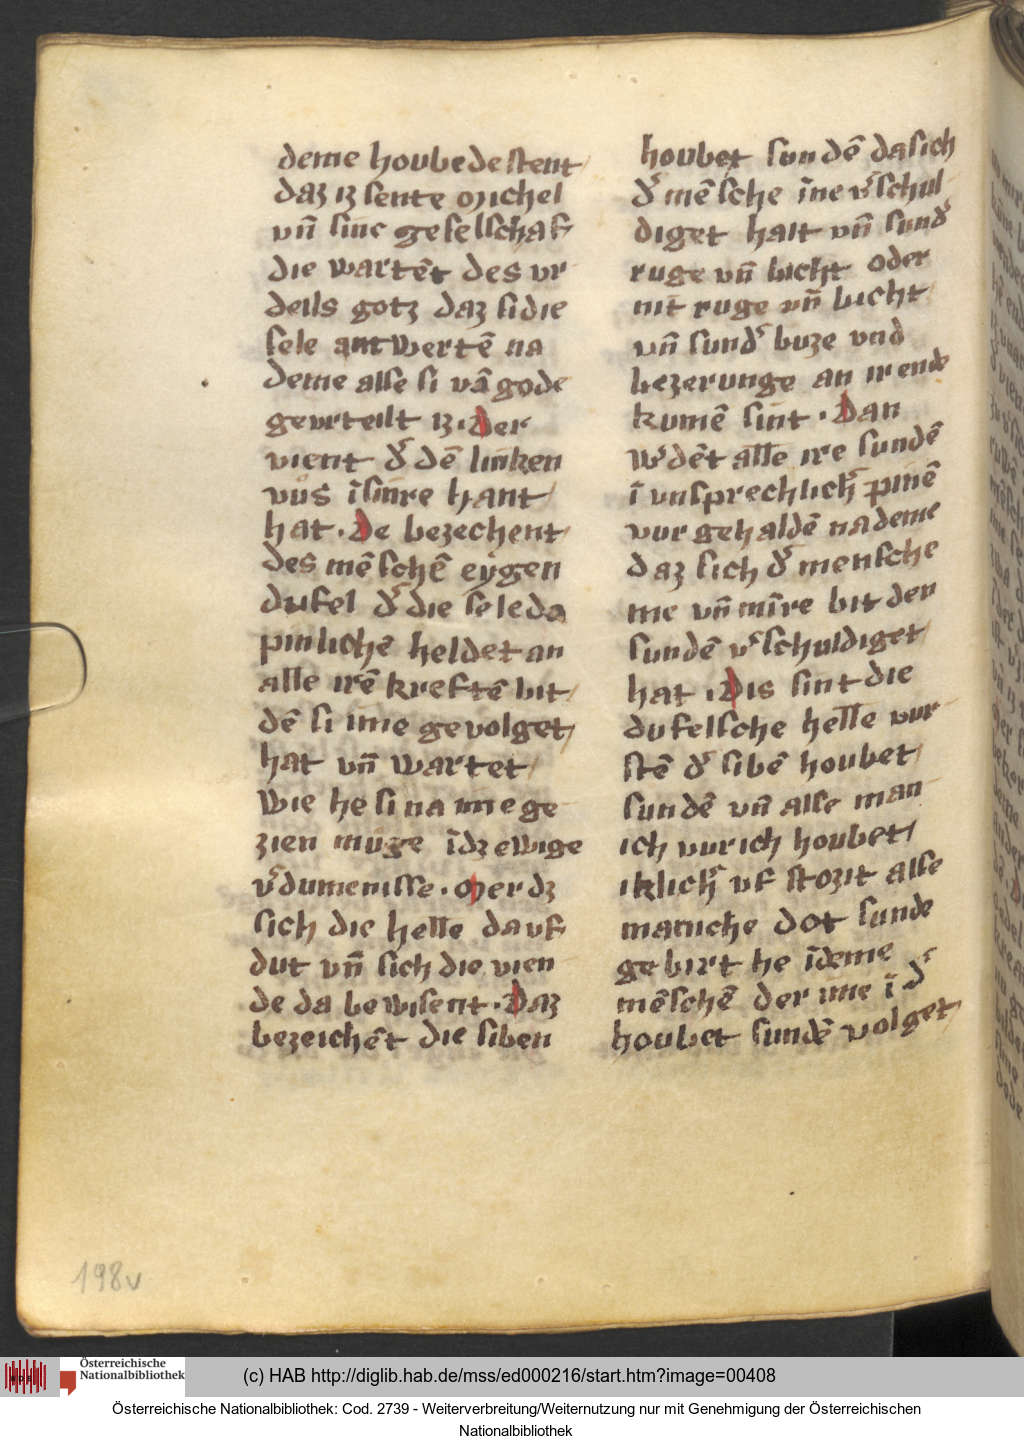 deme houbede stent
daz iz sente michel
vn̄ sine geselschaf
die wartēt des vr
deils gotz daz si die
sele antwertē na
deme alse si vā gode
gevrteilt iz. Der
vient d͛ dē linken
vůs ī sinre hant
hat. De bezechent
des mēschē eẏgen
dufel d͛ die sele da
pinlichē heldet an
alle irē kreftē bit
dē si ime gevolget
hat vn̄ wartet
wie he si na me ge
zien muge īdz ewige
v͛dumenisse. Merdz
sich die helle da vf
dut vn̄ sich die vien
de da bewisent. Daz
bezeichēt die siben
houbet sundē da sich
d͛ mēsche īne v͛schul
diget hait vn̄ sund͛
ruge vn̄ bicht oder
mit ruge vn̄ bicht
vn̄ sund͛ buze vnd
bezerunge an ir ende
kumē sint. Dan
w͛dēt alle ire sundē
ī vnsprechlich͛ pinē
vur gehaldē na deme
daz sich d͛ mensche
me vn̄ mīre bit den
sundē v͛schuldiget
hat. Dis sint die
dufelsche helle vur
stē d͛ sibē houbet
sundē vn̄ alse man
ich vur ich houbet
iklich͛ vf stozit alse
maniche dot sunde
gebirt he īdeme
mēschē der ime ī d͛
houbet sundē volget
198v
Österreichische
Nationalbibliothek
(c) HAB http://diglib.hab.de/mss/ed000216/start.htm?image=00408
Österreichische Nationalbibliothek: Cod. 2739 - Weiterverbreitung/Weiternutzung nur mit Genehmigung der Österreichischen
Nationalbibliothek